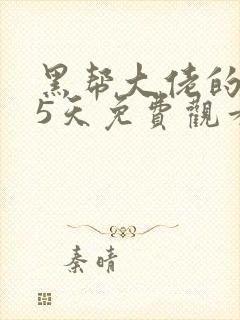 黑帮大佬的
5天免費觀
秦晴